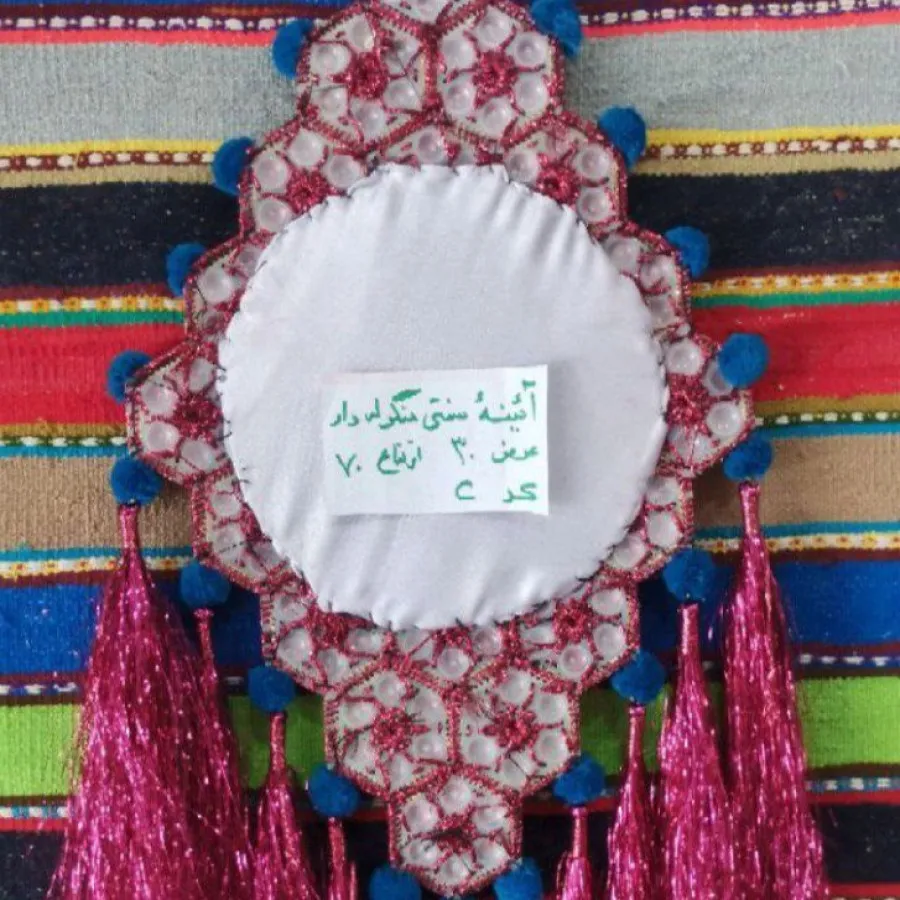 آئینهٔ سنتی منگوله دار
عرض ۳۰ ارتفاع ۷۰
کد C